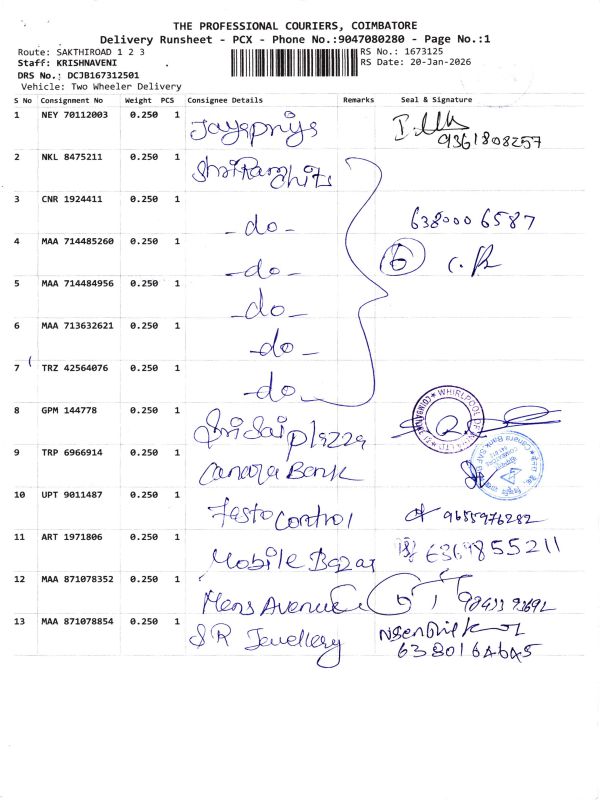 THE PROFESSIONAL COURIERS, COIMBATORE
Delivery Runsheet - PCX - Phone No.:9047080280 - Page No.:1
Route: SAKTHIROAD 1 2 3
Staff: KRISHNAVENI
DRS No.: DCJB167312501
Vehicle: Two Wheeler Delivery
RS No.: 1673125
RS Date: 20-Jan-2026
S No Consignment No Weight PCS Consignee Details Remarks Seal & Signature
1 NEY 70112003 0.250 1 Jayapriya
9361808257
2 NKL 8475211 0.250 1 Shri Ram Chits
3 CNR 1924411 0.250 1 -do- 638000 6587
4 MAA 714485260 0.250 1 -do- 6
5 MAA 714484956 0.250 1 -do-
6 MAA 713632621 0.250 1 -do-
7 TRZ 42564076 0.250 1 -do-
8 GPM 144778 0.250 1 Sri Sai plazza WHIRLPOOL OF INDIA LTD
9 TRP 6966914 0.250 1 Canara Bank Canara Bank
10 UPT 9011487 0.250 1 Festo Control 9655976282
11 ART 1971806 0.250 1 Mobile Bazar 6369855211
12 MAA 871078352 0.250 1 Mens Avenue
13 MAA 871078854 0.250 1 S R Jewellery